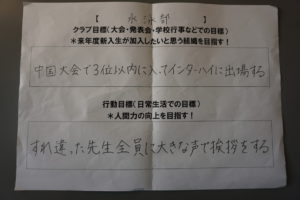 【 水泳部 】
クラブ目標(大会・発表会・学校行事などでの目標)
＊来年度新入生が加入したいと思う組織を目指す！
中国大会で3位以内に入ってインターハイに出場する
行動目標(日常生活での目標)
＊人間力の向上を目指す！
すれ違った先生全員に大きな声で挨拶をする